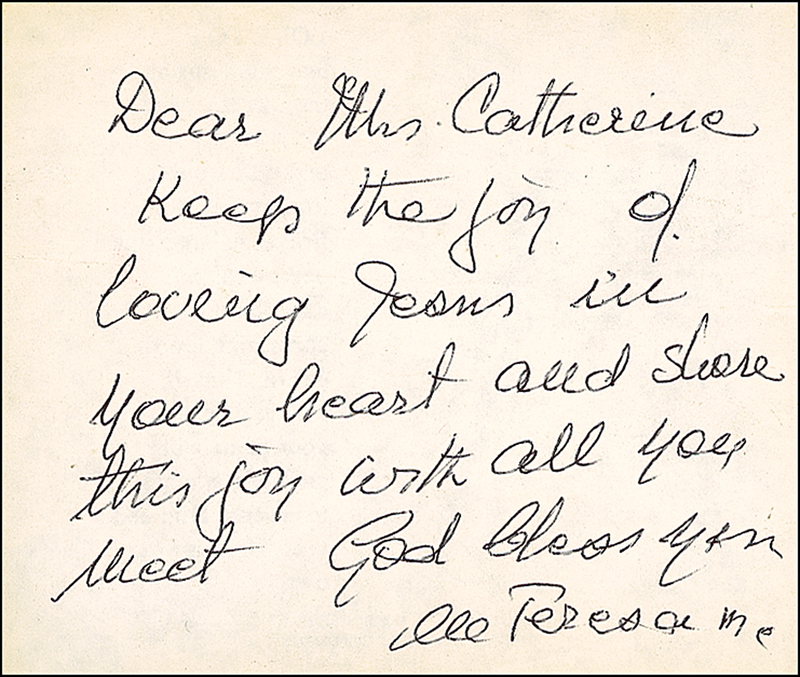 Dear Mrs. Catherine
Keep the joy of
loving Jesus in
your heart and share
this joy with all you
meet God bless you
M Teresa mc